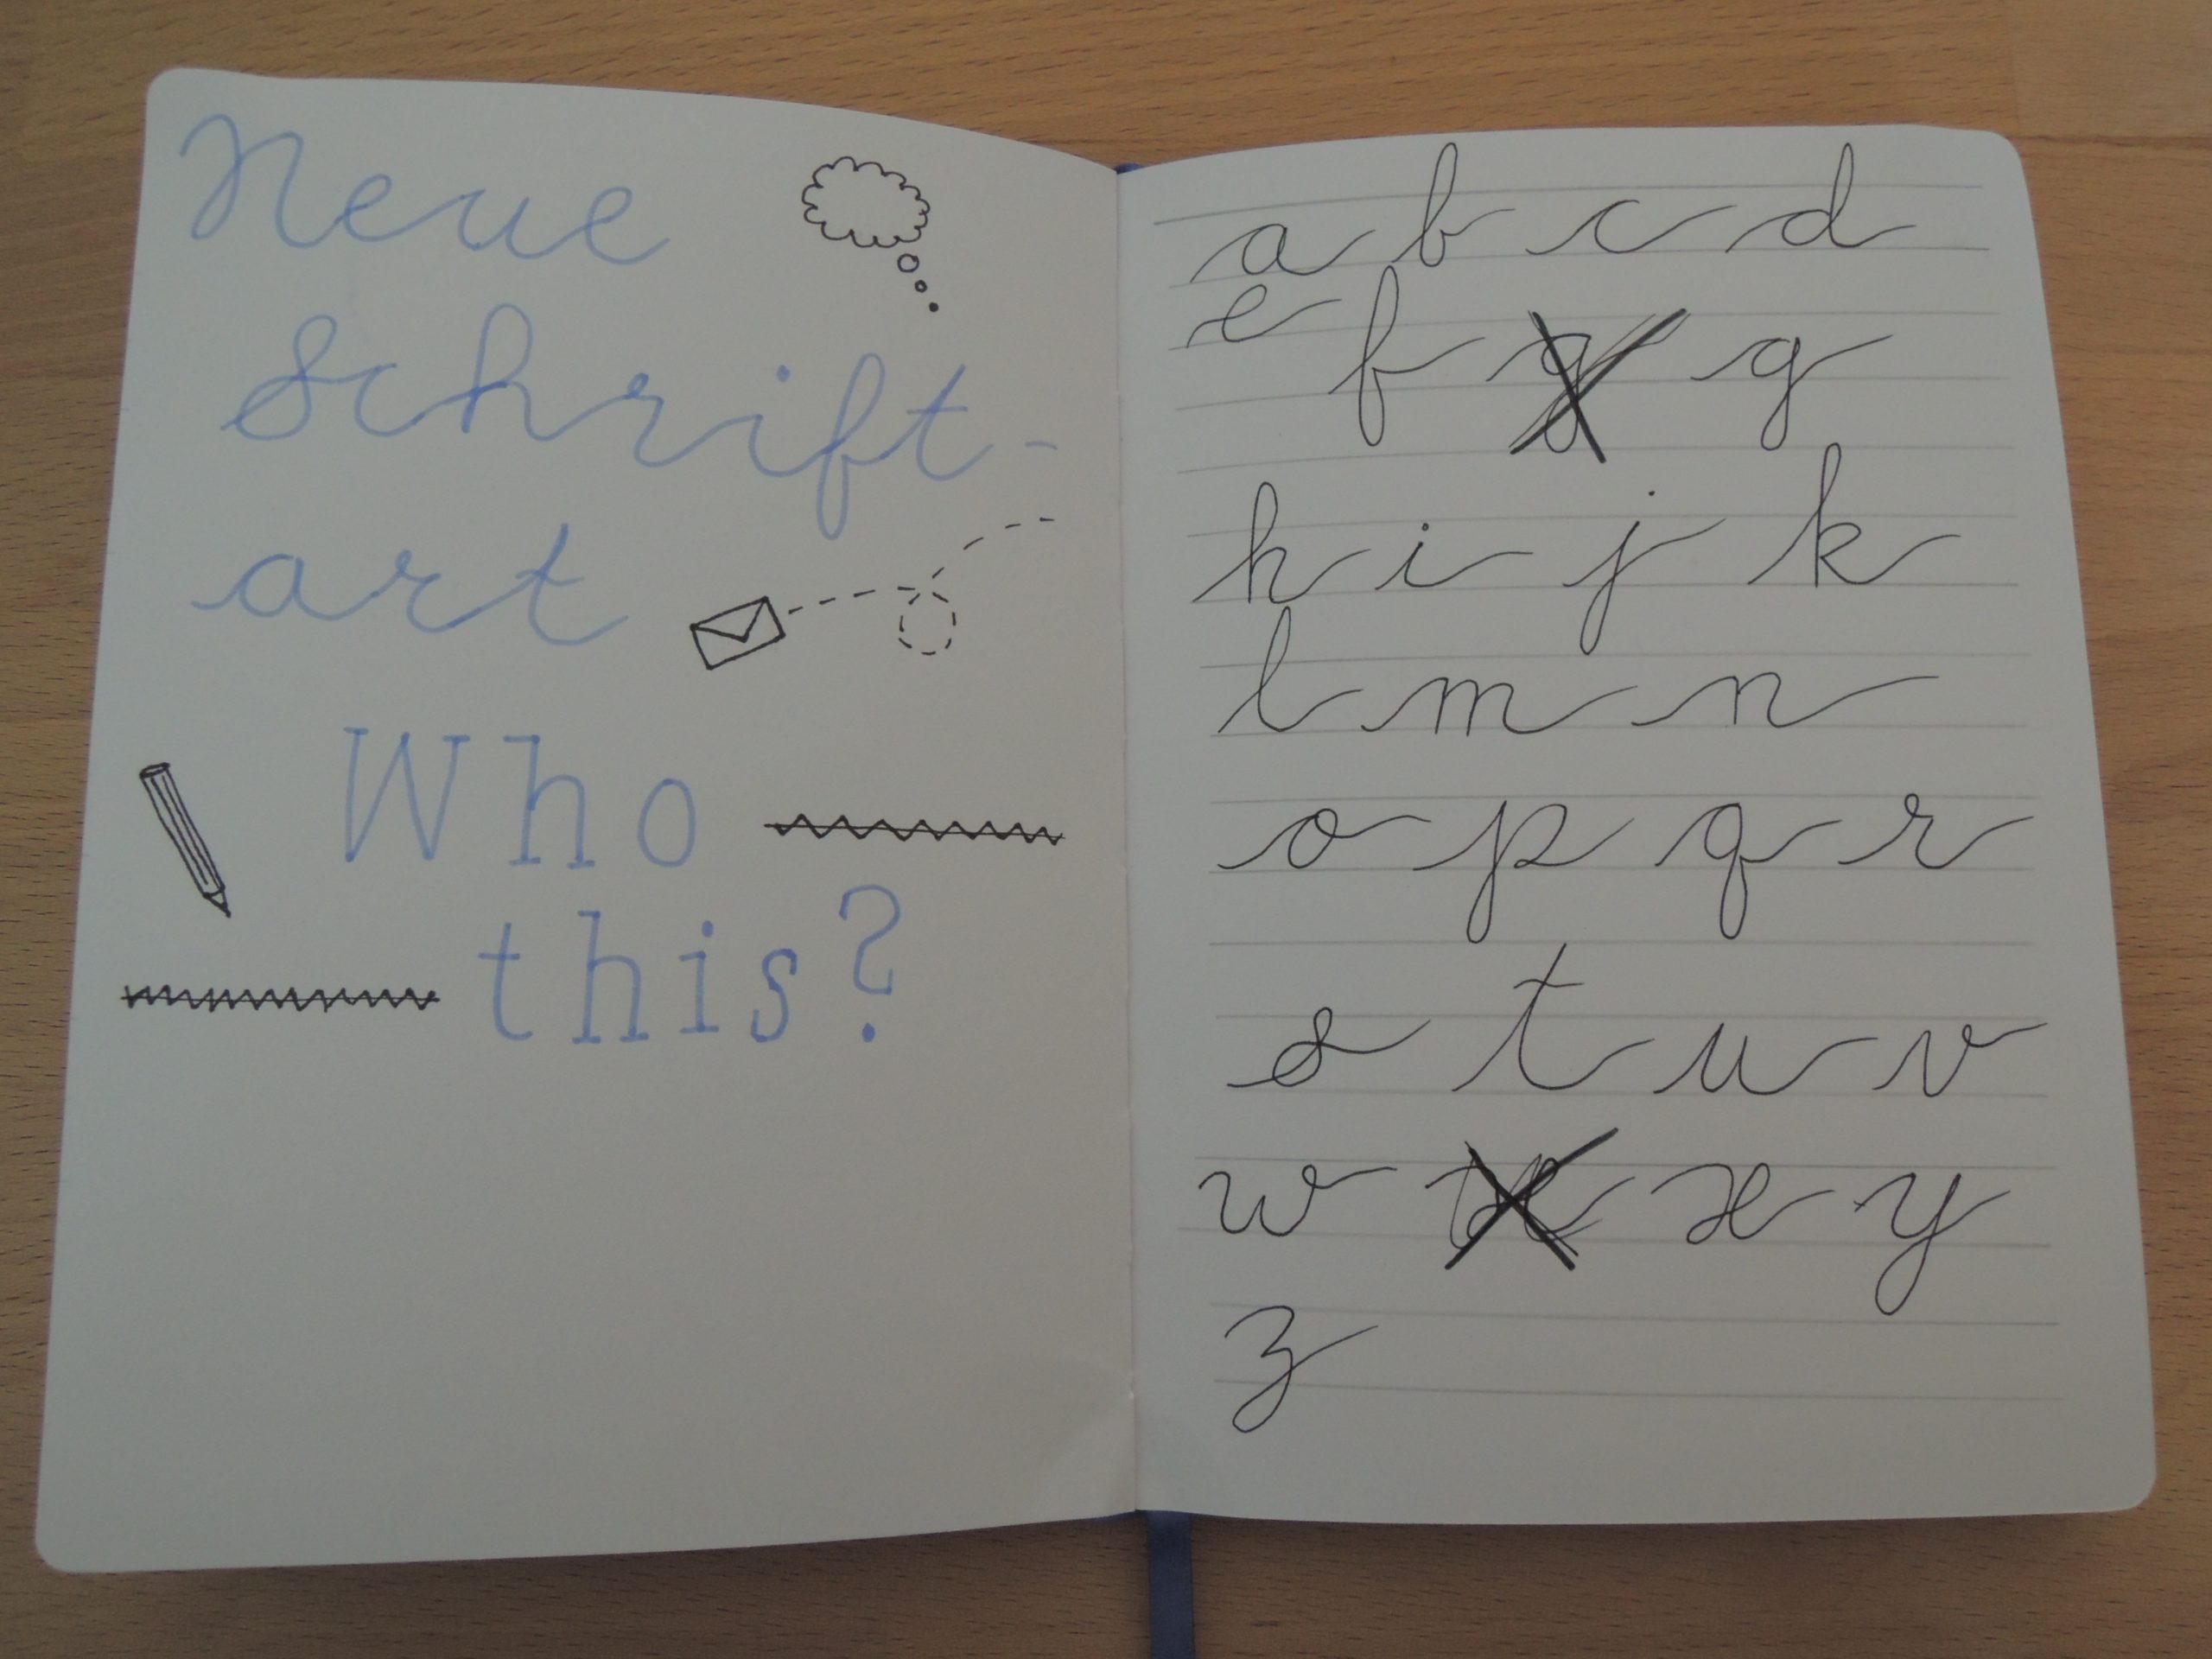 Neue
Schrift-
art
Who
this?
a b c d
e f g g
h i j k
l m n
o p q r
s t u v
w x x y
z